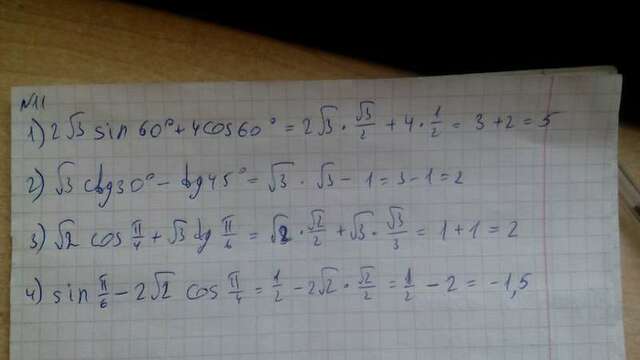 №11
1) 2√3 sin 60° + 4cos60° = 2√3 · √3/2 + 4 · 1/2 = 3 + 2 = 5
2) √3 ctg30° - tg45° = √3 · √3 - 1 = 3 - 1 = 2
3) √2 cos π/4 + √3 tg π/6 = √2 · √2/2 + √3 · √3/3 = 1 + 1 = 2
4) sin π/6 - 2√2 cos π/4 = 1/2 - 2√2 · √2/2 = 1/2 - 2 = -1,5